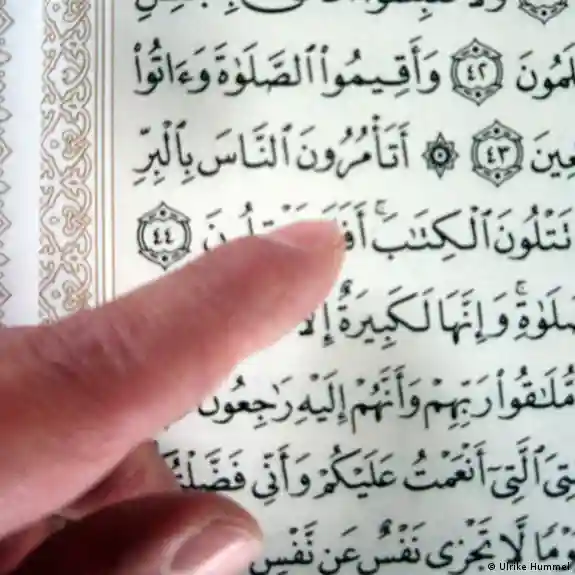 لَمُونَ ٤٢ وَأَقِيمُوا۟ ٱلصَّلَوٰةَ وَءَاتُوا۟
عِينَ ٤٣ ۞ أَتَأْمُرُونَ ٱلنَّاسَ بِٱلْبِرِّ
تَتْلُونَ ٱلْكِتَٰبَ ۚ ٤٤
صَلَوٰةِ ۚ وَإِنَّهَا لَكَبِيرَةٌ إِلَّا
مُّلَٰقُوا۟ رَبِّهِمْ وَأَنَّهُمْ إِلَيْهِ رَٰجِعُونَ
تِىَ ٱلَّتِىٓ أَنْعَمْتُ عَلَيْكُمْ وَأَنِّى
وْمًا لَّا تَجْزِى نَفْسٌ عَن نَّفْسٍ
© Ulrike Hummel